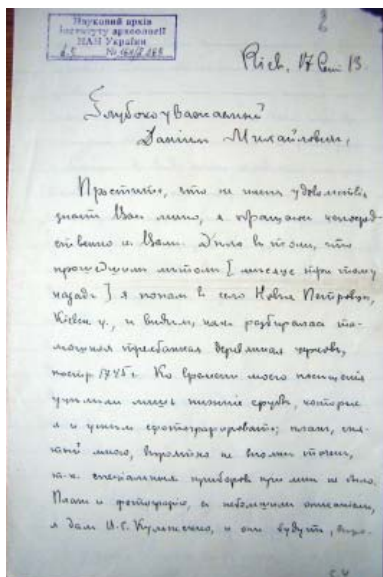 2
Науковий архів
Інституту археології
НАН України
Кіев, 17 Сент 13.
Глубокоуважаемый
Данiил Михайлович,
Простите, что не имея удовольствiя
знать Вас лично, я обращаюсь непосред-
ственно к Вам. Дело в том, что
прошедшим летом [ месяце три тому
назад ] я попал в село Новые Петровцы,
Кiевск. у., и видел, как разбиралась та-
мошняя трехбанная деревянная церковь,
постр. 1745 г. Ко времени моего посещенiя
уцелели лишь нижнiе срубы, которые
я и успел сфотографировать; план, сня-
тый мною, вероятно не вполне точен,
т.к. специальных приборов при мне не было.
План и фотографiю, с небольшим описанiем,
я дал И.С. Кульженко, и они будут, веро-